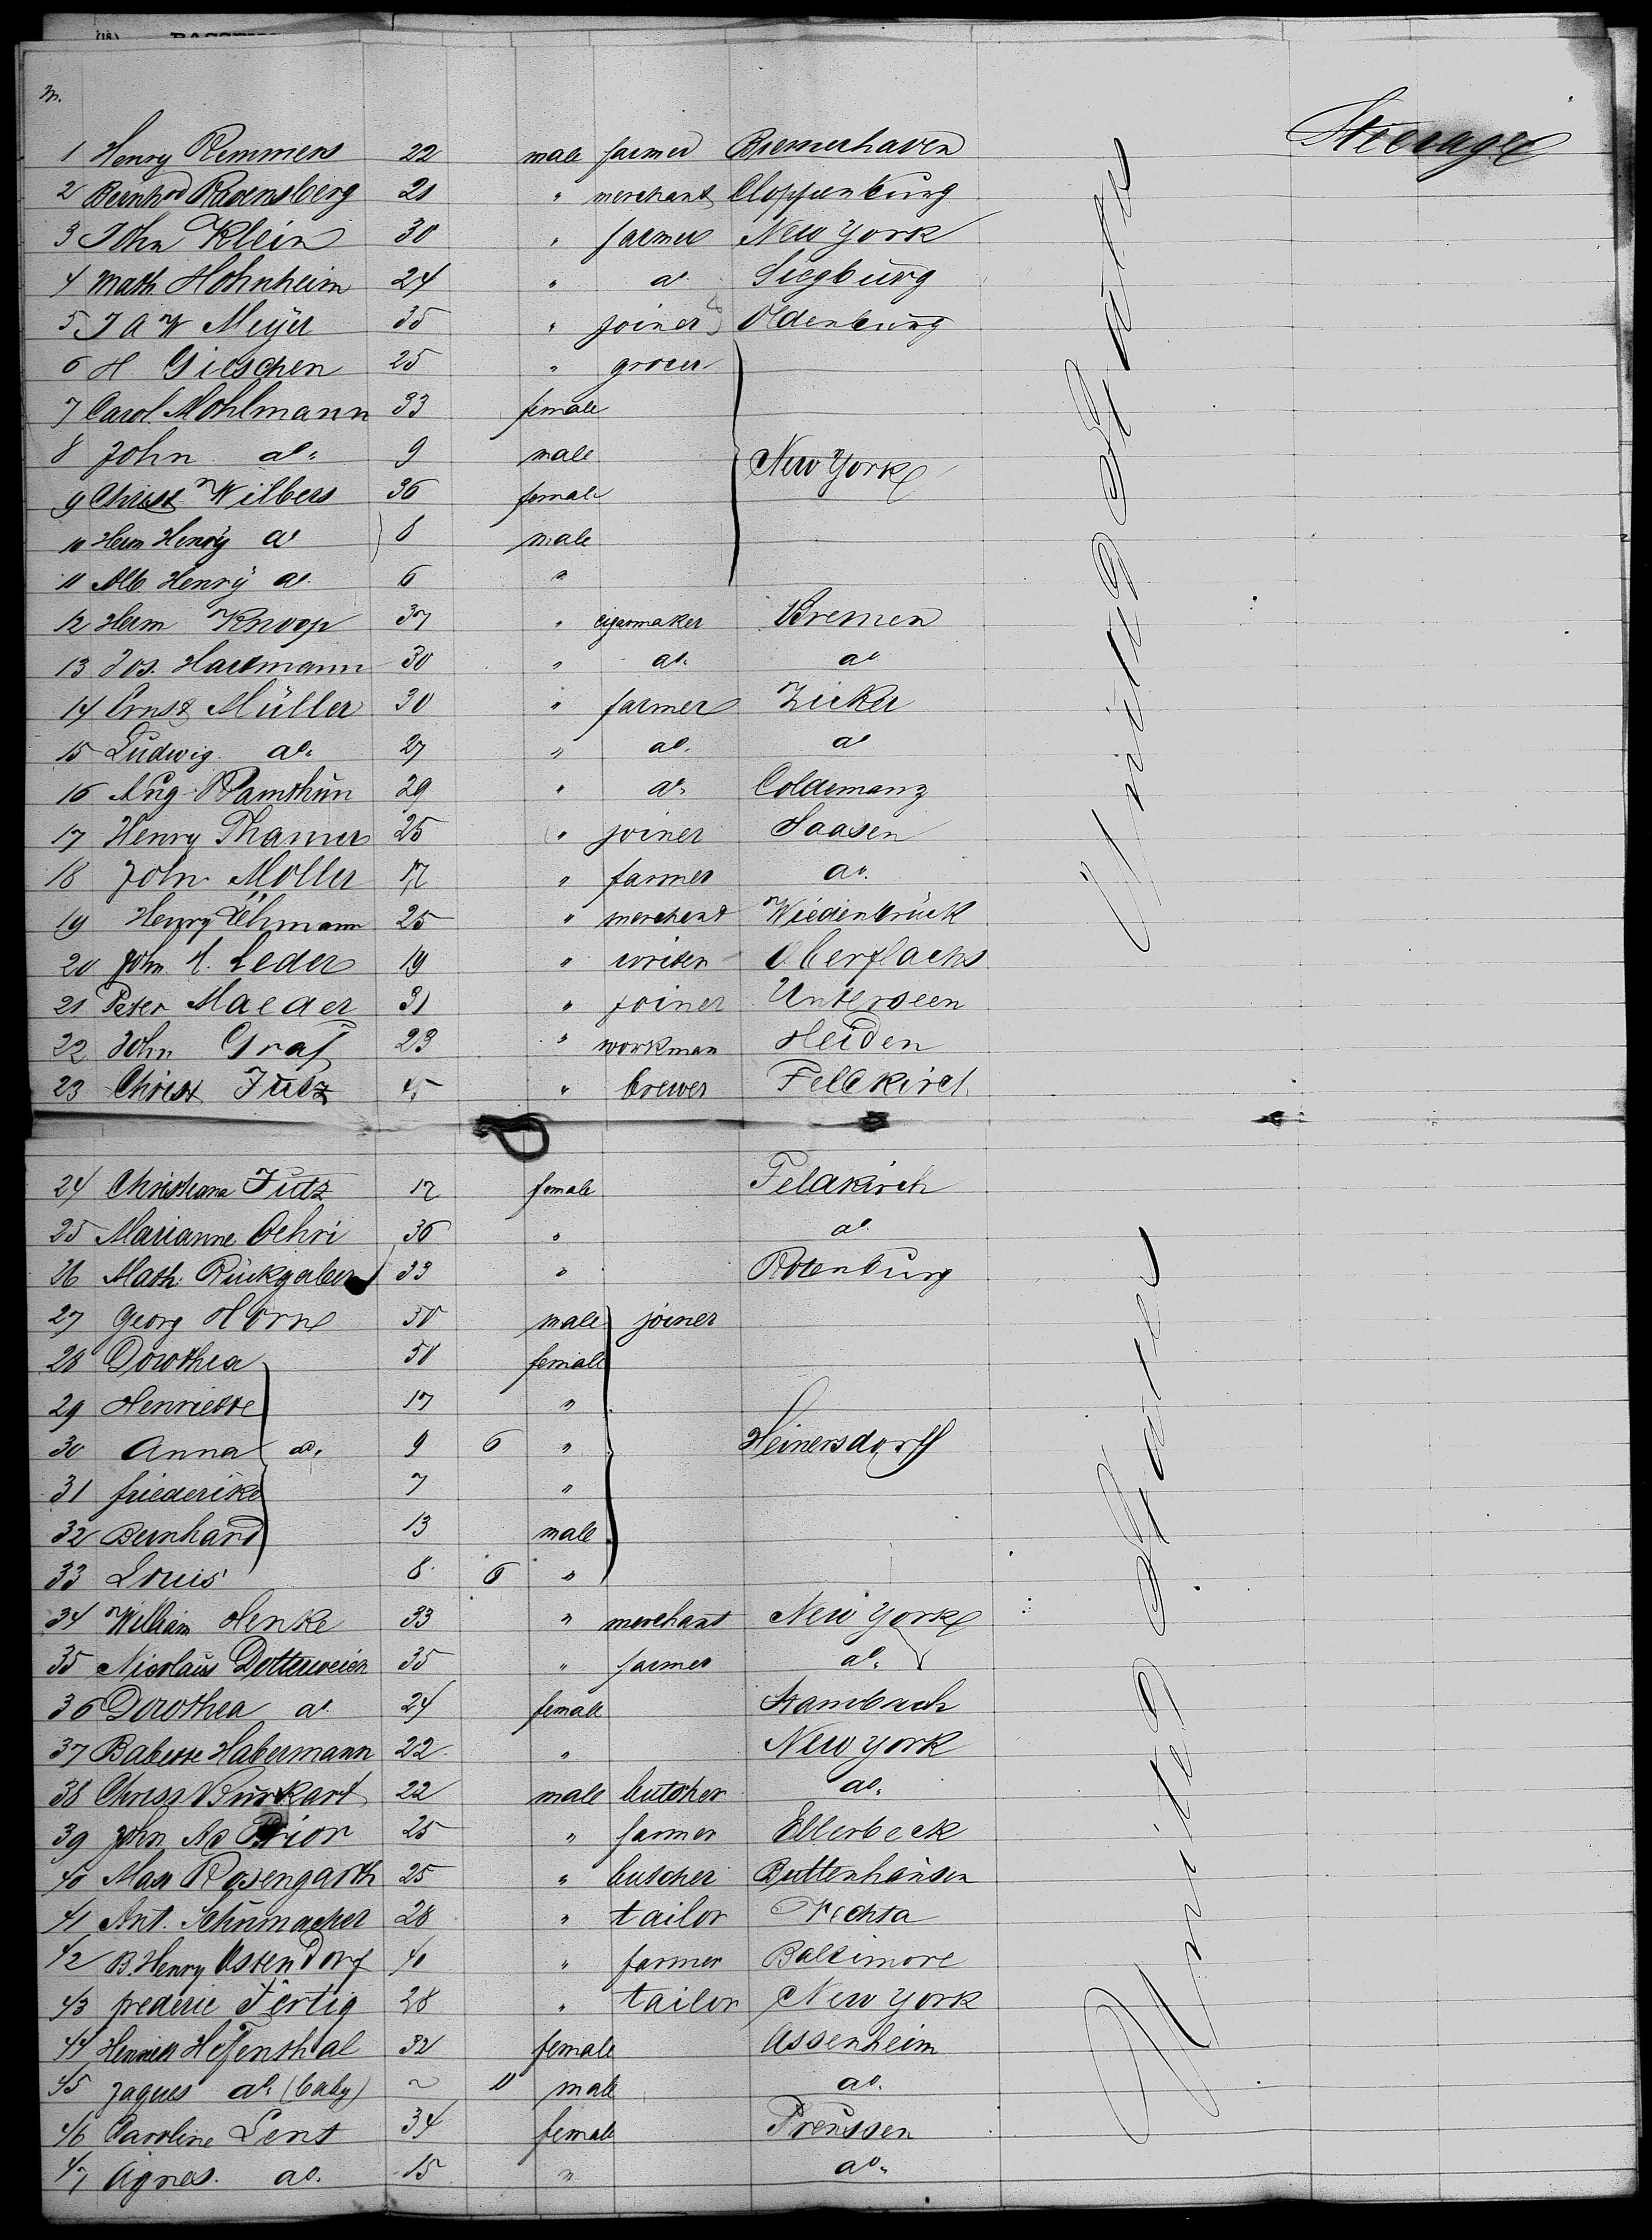 m.
Steerage
1 Henry Remmers 22 male farmer Bremerhaven
2 Bernhrd Ravensberg 21 " merchant Cloppenburg
3 John Klein 30 " farmer New York
4 Math. Hohnheim 24 " do. Siegburg
5 J A W Meyer 35 " joiner Oldenburg
6 H Gieschen 25 " grocer
7 Carol. Mohlmann 33 female
8 John do. 9 male New York
9 Christ Wilbers 36 female
10 Herm Henry do 8 male
11 Alb Henry do. 6 "
12 Herm Knoop 37 " cigarmaker Bremen
13 Jos. Hackmann 30 " do. do
14 Ernst Müller 30 " farmer Zicker
15 Ludwig do. 27 " do. do
16 Aug. Ramthun 29 " do. Coldemanz
17 Henry Thamer 25 " joiner Saasen
18 John Möller 17 " farmer do.
19 Henry Lehmann 25 " merchant Wiedenbrück
20 John Leder 19 " writer Oberflachs
21 Peter Maeder 31 " joiner Unterseen
22 John Graf 23 " workman Heiden
23 Christ Jutz 45 " brewer Feldkirch
24 Christiana Jutz 17 female Feldkirch
25 Marianne Oehri 36 " do
26 Math. Rückgaber 33 " Rotenburg
27 Georg Horn 50 male joiner
28 Dorothea 50 female
29 Henriette 17 "
30 Anna do. 9 6 " Heinersdorff
31 friederike 7 "
32 Bernhard 13 male
33 Louis 8 6 "
34 William Henke 33 " merchant New York
35 Nicolaus Dotterweich 35 " farmer do.
36 Dorothea do. 24 female Stambach
37 Babette Habermann 22 " New York
38 Christ Burkart 22 male butcher do.
39 John Ad Prior 25 " farmer Ellerbeck
40 Max Rosengarth 25 " butcher Buttenhausen
41 Ant. Schumacher 28 " tailor Vechta
42 B. Henry Ostendorf 40 " farmer Baltimore
43 frederic Fertig 28 " tailor New York
44 Henriett 32 female Assenheim
45 Jaques do. (baby) ~ 11 male do.
46 Caroline Lent 34 female Preussen
47 Agnes. do. 15 " do.
United States
United States